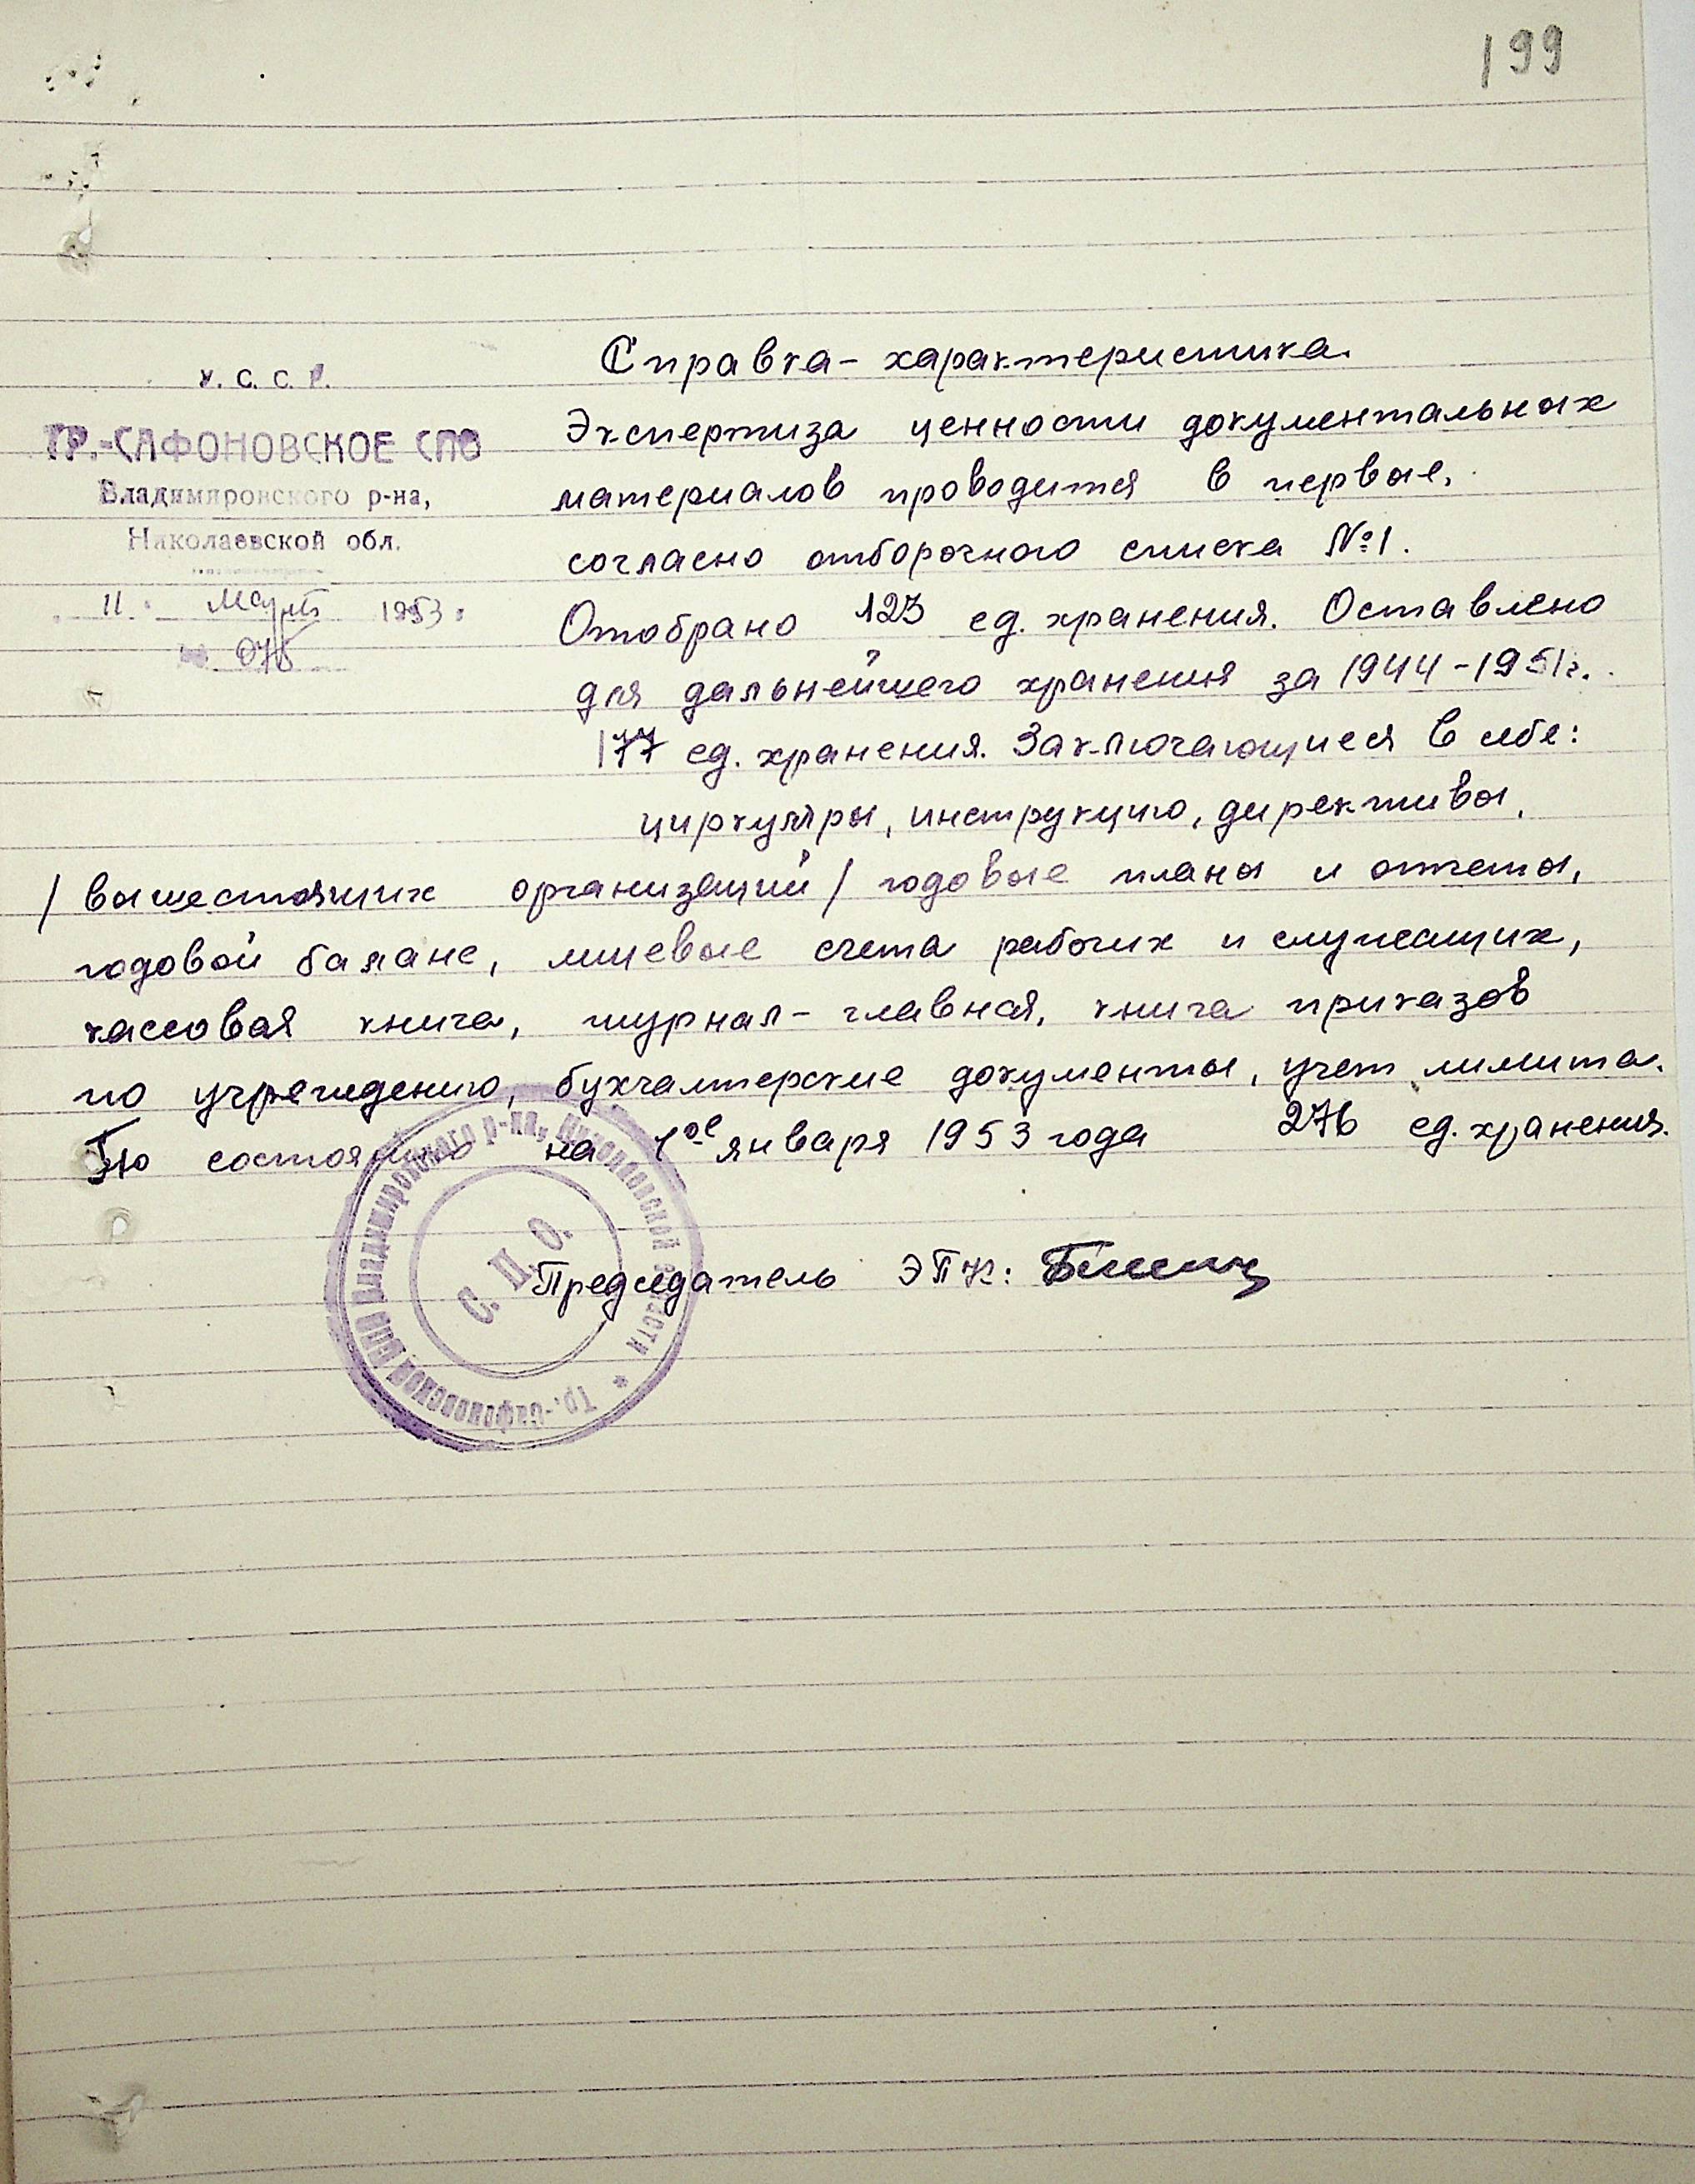 199
У. С. С. Р.
ТР.-САФОНОВСКОЕ СПО
Владимировского р-на,
Николаевской обл.
11 март 1953
075
Справка - характеристика.
Экспертиза ценности документальных
материалов проводится в первые,
согласно отборочного списка №1.
Отобрано 123 ед. хранения. Оставлено
для дальнейшего хранения за 1944-1951г.
177 ед. хранения. Заключающиеся в себе:
циркуляры, инструкцию, директивы,
/ вышестоящих организаций / годовые планы и отчеты,
годовой баланс, лицевые счета рабочих и служащих,
кассовая книга, журнал - главная, книга приказов
по учреждению, бухгалтерские документы, учет лимита.
По состоянию на 1ое января 1953 года 276 ед. хранения.
Председатель ЭПК:
Тр.-Сафоновской СПО Владимировского р-на, Николаевской области *
С. П. О.